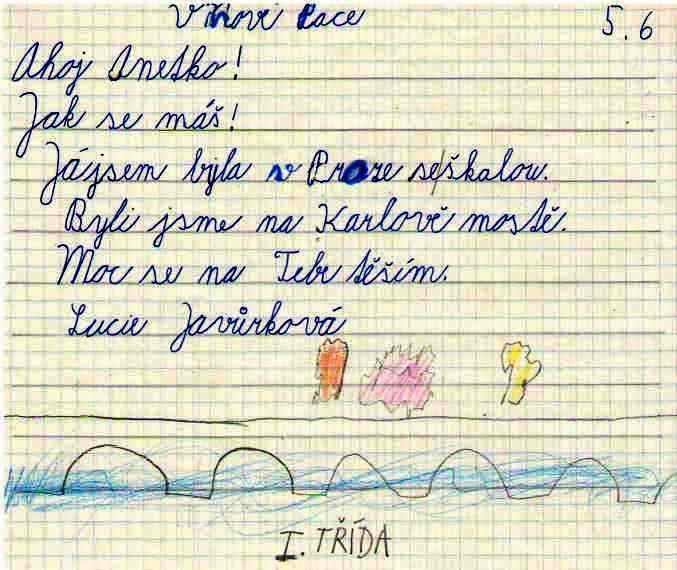 V Nové Pace 5.6
Ahoj Anetko!
Jak se máš!
Jájsem byla v Praze se/škalou.
Byli jsme na Karlově mostě.
Moc se na Tebe těším.
Lucie Javůrková
I. TŘÍDA